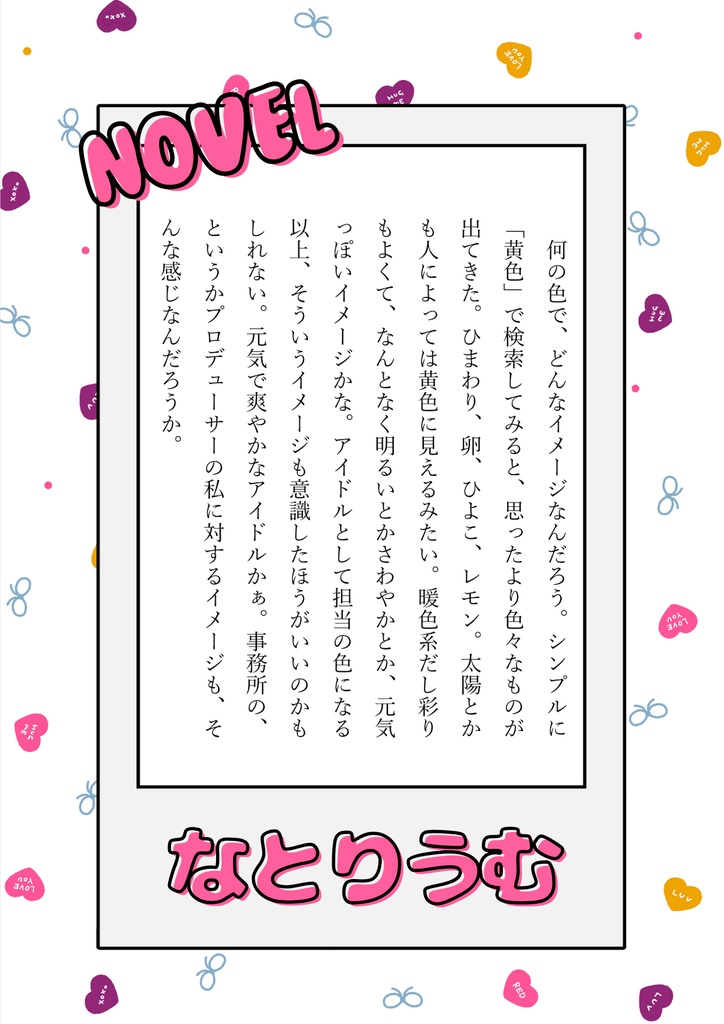 NOVEL
何の色で、どんなイメージなんだろう。シンプルに
「黄色」で検索してみると、思ったより色々なものが
出てきた。ひまわり、卵、ひよこ、レモン。太陽とか
も人によっては黄色に見えるみたい。暖色系だし彩り
もよくて、なんとなく明るいとかさわやかとか、元気
っぽいイメージかな。アイドルとして担当の色になる
以上、そういうイメージも意識したほうがいいのかも
しれない。元気で爽やかなアイドルかぁ。事務所の、
というかプロデューサーの私に対するイメージも、そ
んな感じなんだろうか。
なとりうむ
xoxo
LOVE YOU
HUG ME
HUG ME
xoxo
HUG ME
LUV
LOVE YOU
HUG ME
LOVE YOU
LUV
xoxo
RED
LUV